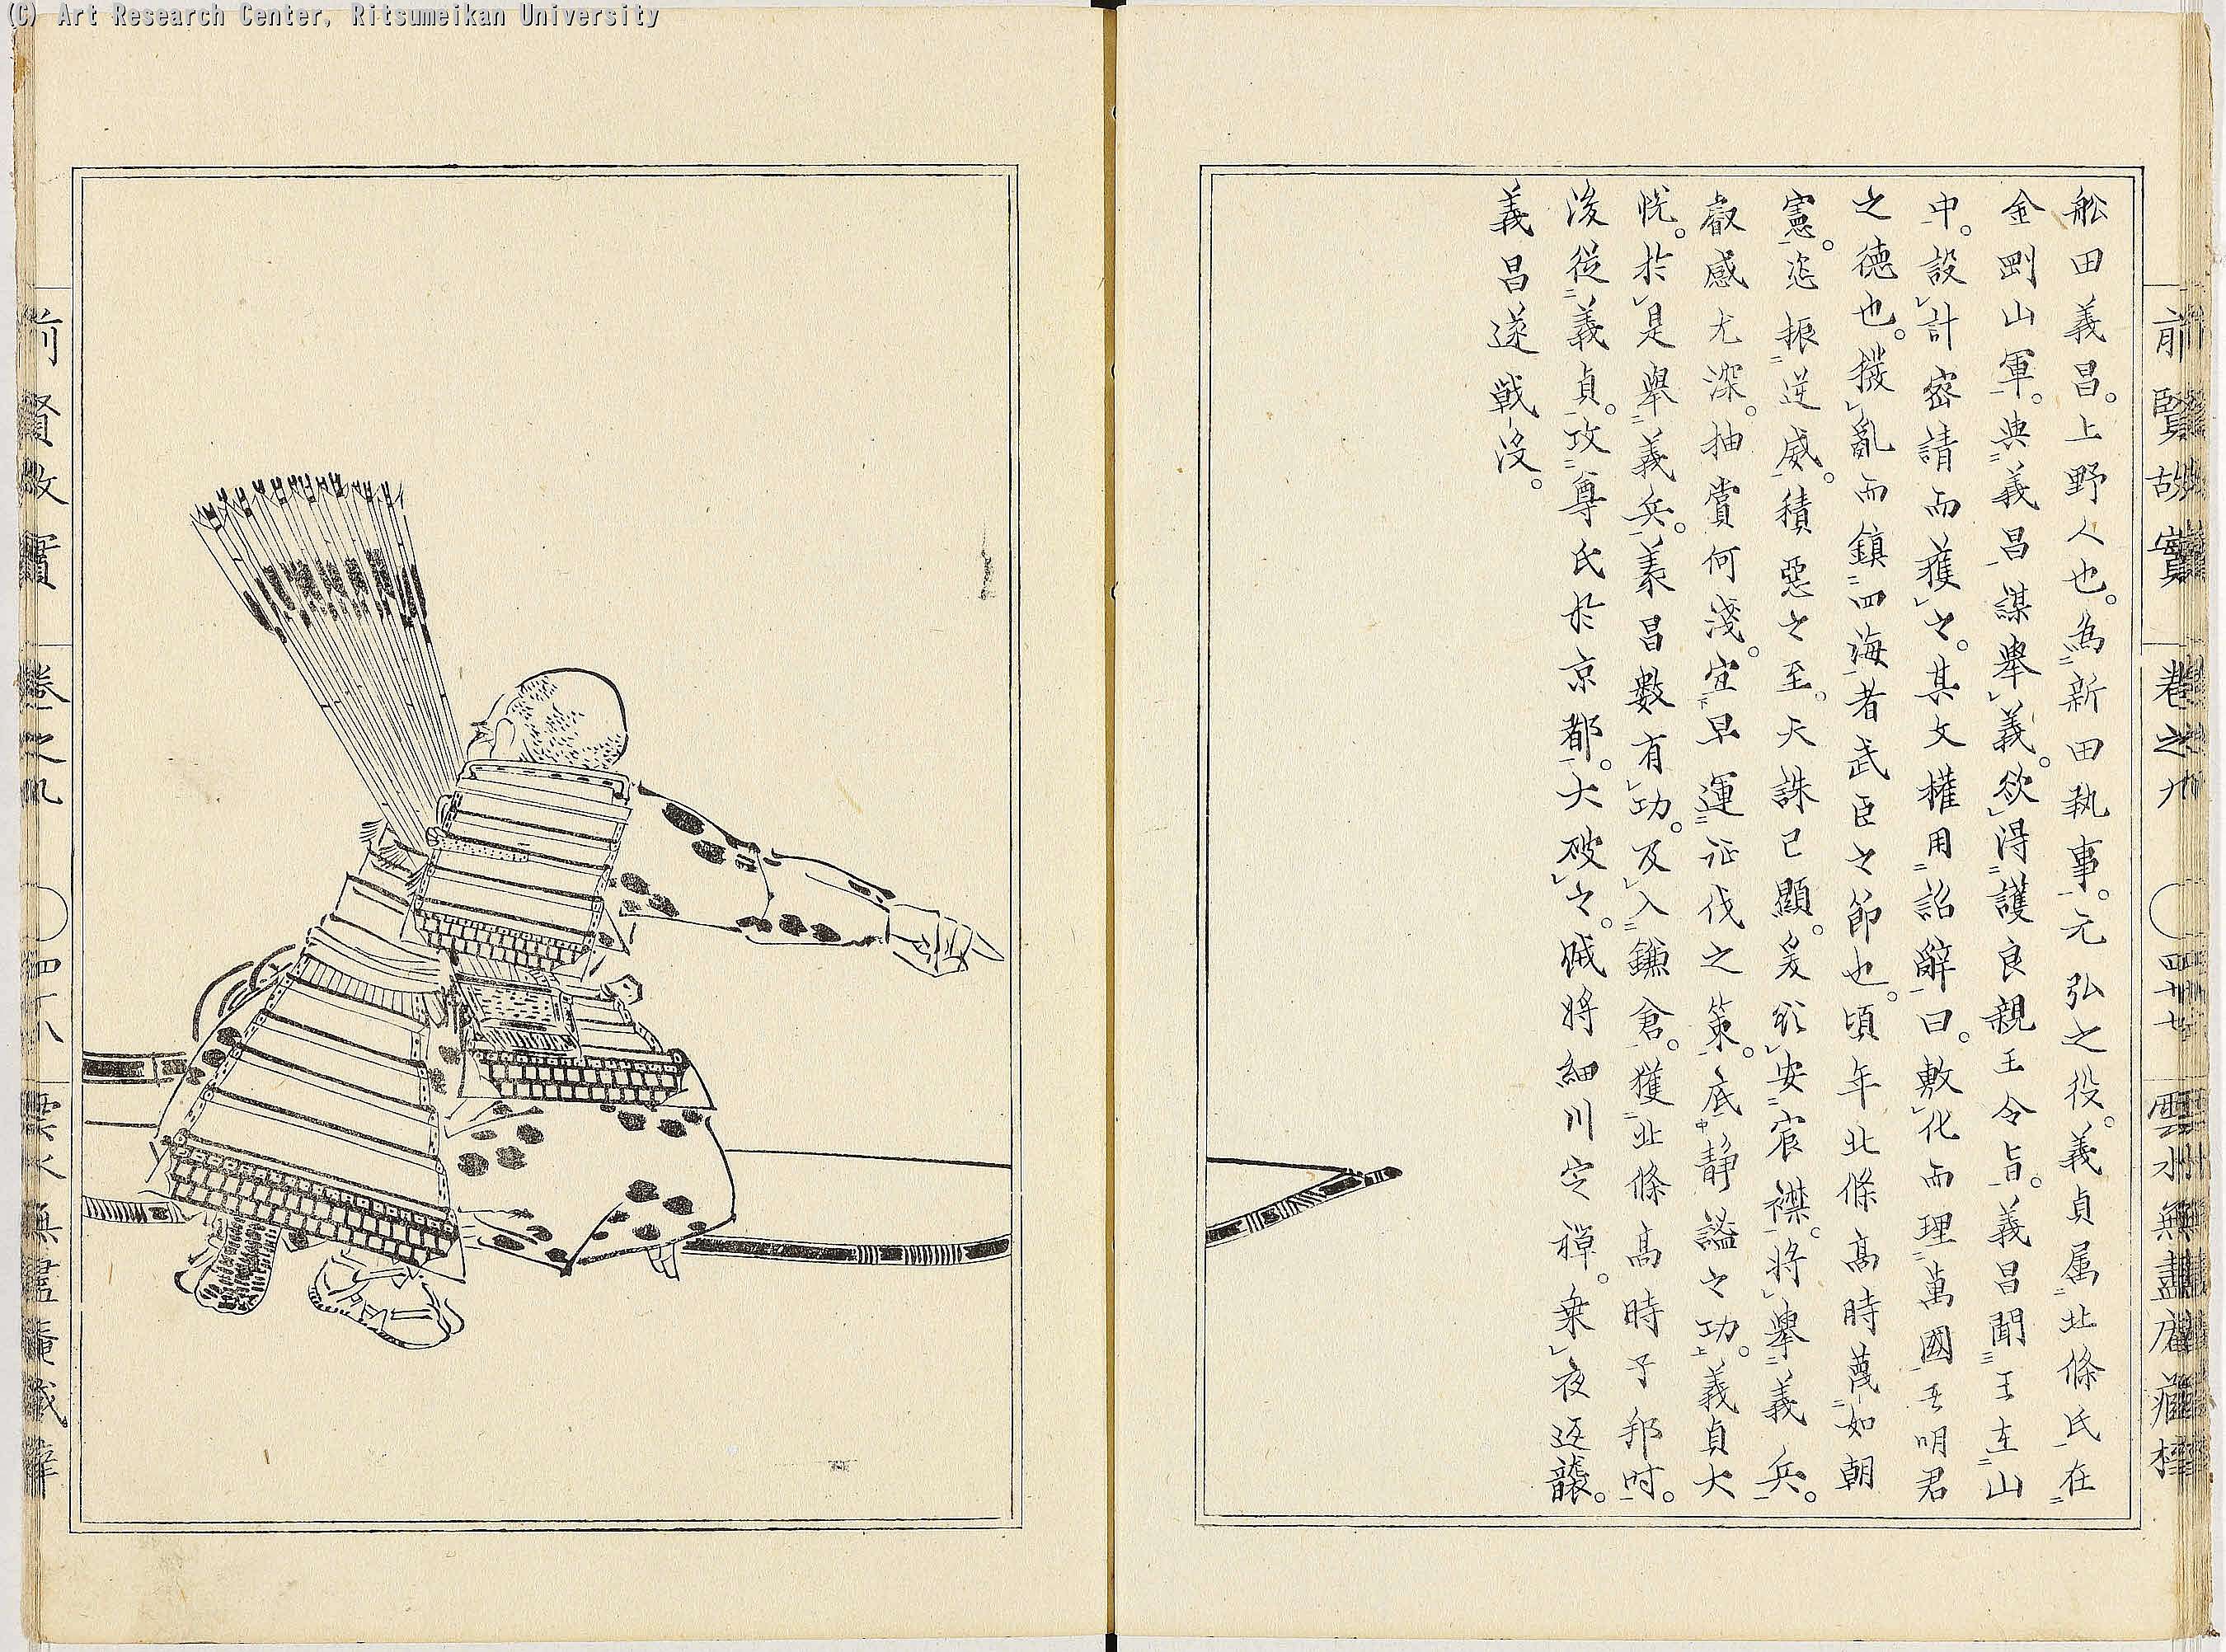 (C) Art Research Center, Ritsumeikan University
前賢故實 卷之九 四十七 雲水無盡庵藏梓
舩田義昌。上野人也。為新田執事。元弘之役。義貞属北條氏在
金剛山軍。與義昌謀擧義。欲得護良親王令旨。義昌聞王在山
中。設計密請而獲之。其文擬用詔辭曰。敷化而理萬國者明君
之德也。撥亂而鎮四海者武臣之節也。頃年北條高時蔑如朝
憲。恣振逆威。積惡之至。天誅已顯。爰欲安宸襟。將擧義兵。
叡感尤深。抽賞何淺。宜早運征伐之策。底靜謐之功。義貞大
悦。於是擧義兵。義昌數有功。及入鎌倉。獲北條高時子邦时。
後從義貞。攻尊氏於京都。大破之。賊将細川定禅。乗夜返襲。
義昌遂戦没。
前賢故實 卷之九 四十八 雲水無盡庵藏梓